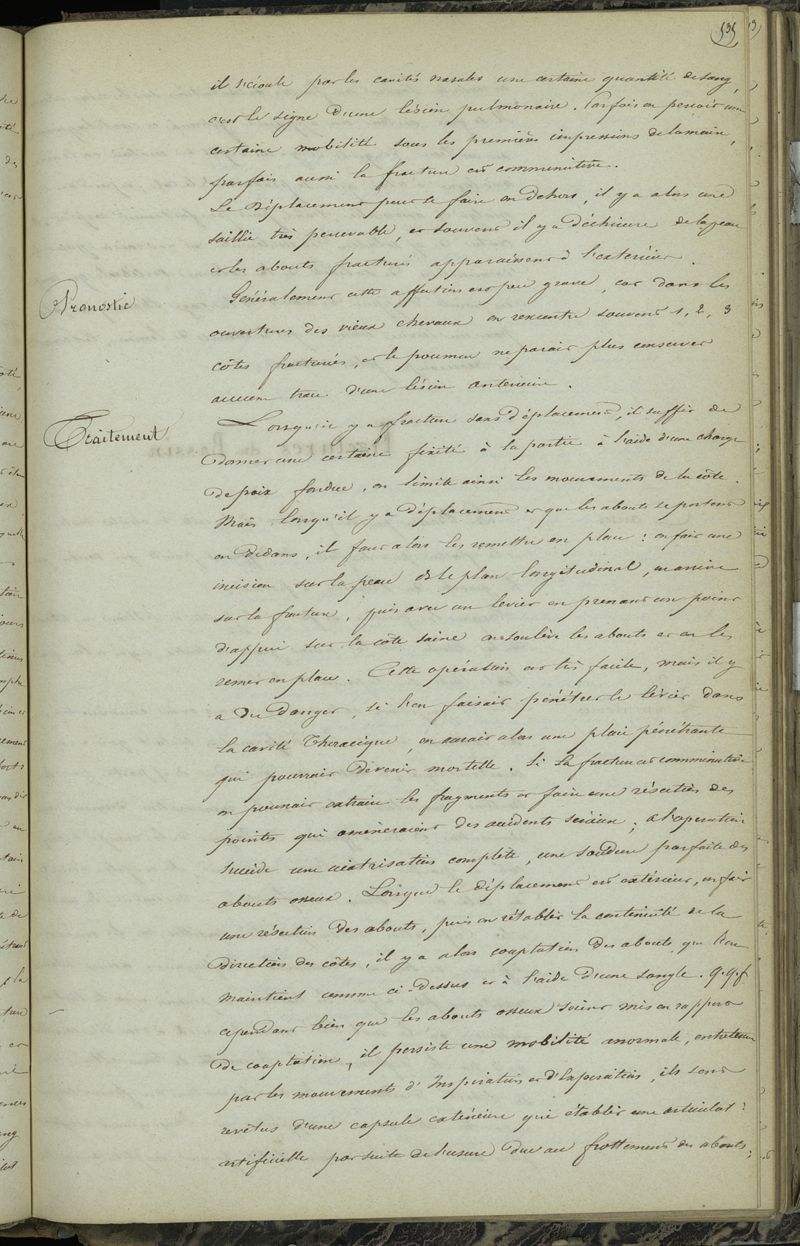 il s'écoule par les cavités nasales une certaine quantité de sang,
c'est le signe d'une lésion pulmonaire. Parfois on perçoit une
certaine mobilité sous les premières impressions de la main,
parfois aussi la fracture est comminutive.
Le déplacement peut se faire en dehors, il y a alors une
saillie très percevable, et souvent il y a déchirure de la peau
et les abouts fracturés apparaissent à l'extérieur.
Pronostic
Généralement cette affection est peu grave, car dans les
ouvertures des vieux chevaux on rencontre souvent 1, 2, 3
côtes fracturées, et le poumon ne paraît plus conserver
aucune trace d'une lésion antérieure.
Traitement
Lorsqu'il y a fracture sans déplacement, il suffit de
donner une certaine fixité à la partie à l'aide d'une charge
de poix fondue, on limite ainsi les mouvements de la côte.
Mais lorsqu'il y a déplacement et que les abouts se portent
en dedans, il faut alors les remettre en place : on fait une
incision sur la peau ds le plan longitudinal, on arrive
sur la fracture, puis avec un levier en prenant un point
d'appui sur la côte saine on soulève les abouts et on les
remet en place. Cette opération est très facile, mais il y
a du danger, si l'on faisait pénétrer le levier dans
la cavité thoracique, on aurait alors une plaie pénétrante
qui pourrait devenir mortelle. Si la fracture est comminutive
on pourrait extraire les fragments et faire une résection des
pointes qui amèneraient des accidents sérieux, à l'opération
succède une cicatrisation complète, une soudure parfaite des
abouts osseux. Lorsque le déplacement est extérieur, on fait
une résection des abouts, puis on rétablit la continuité de la
direction des côtes, il y a alors coaptation des abouts que l'on
maintient comme ci-dessus et à l'aide d'une sangle. q.q.f.
cependant bien que les abouts osseux soient mis en rapport
de coaptation, il persiste une mobilité anormale, entretenue
par les mouvements d'Inspiration et d'Expiration, ils sont
revêtus d'une capsule extérieure qui établit une articulat:
artificielle par suite de l'usure due au frottement des abouts;